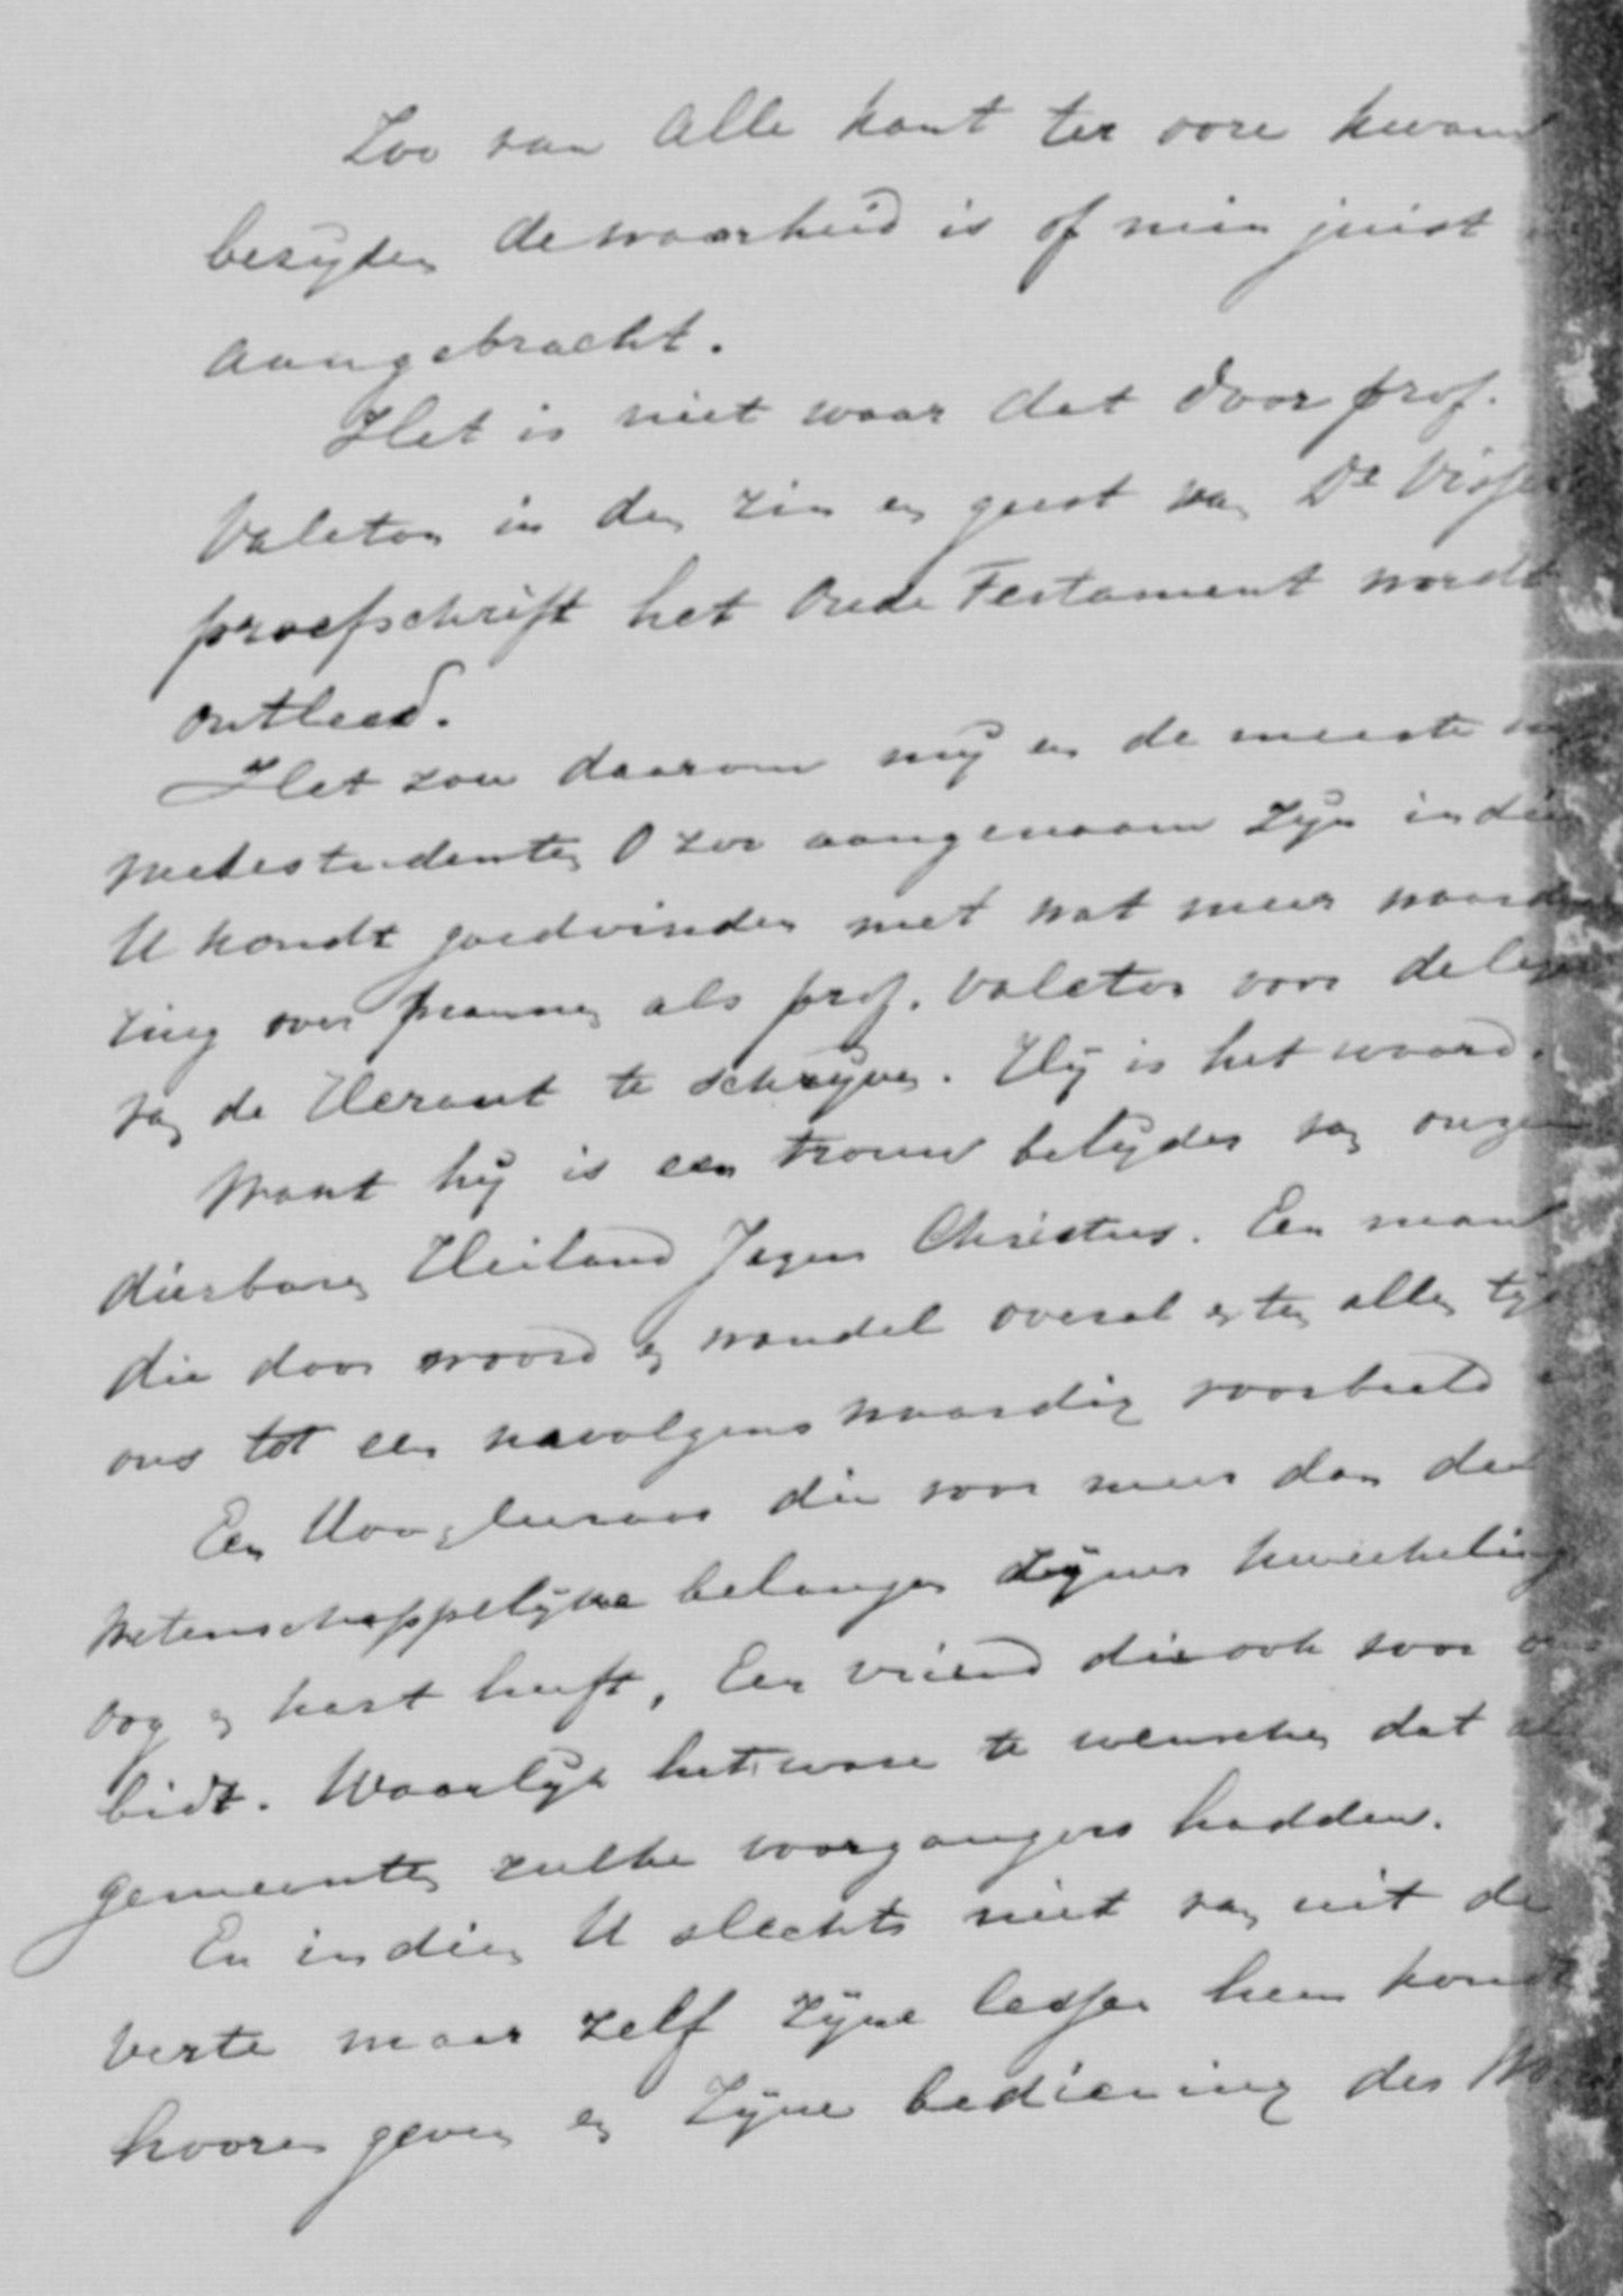 Zoo van alle kant ter oore kwam
bezyden de waarheid is of min juist
aangebracht.
Het is niet waar dat door prof.
Valeton in den zin en geest van Dr Visser
proefschrift het Oude Testament wordt
ontleed.
Het zou daarom my en de meeste
medestudenten O zoo aangenaam zyn indien
U kondt goedvinden met wat meer waarde
ring over mannen als prof. Valeton voor de lezers
van de Heraut te schryven. Hy is het waard.
Want hy is een trouw belyder van onzen
dierbaren Heiland Jezus Christus. Een man
die door woord en wandel overal en ten allen tyde
ons tot een navolgenswaardig voorbeeld
Een Hoogleeraar die voor meer dan de
wetenschappelyke belangen zyner kweekeling
oog en hart heeft, Een vriend die ook voor
bidt. Waarlyk het ware te wenschen dat
gemeenten zulke voorgangers hadden.
En indien U slechts niet van uit de
verte maar zelf zyne lessen hem kondt
hooren geven en zyne bediening des